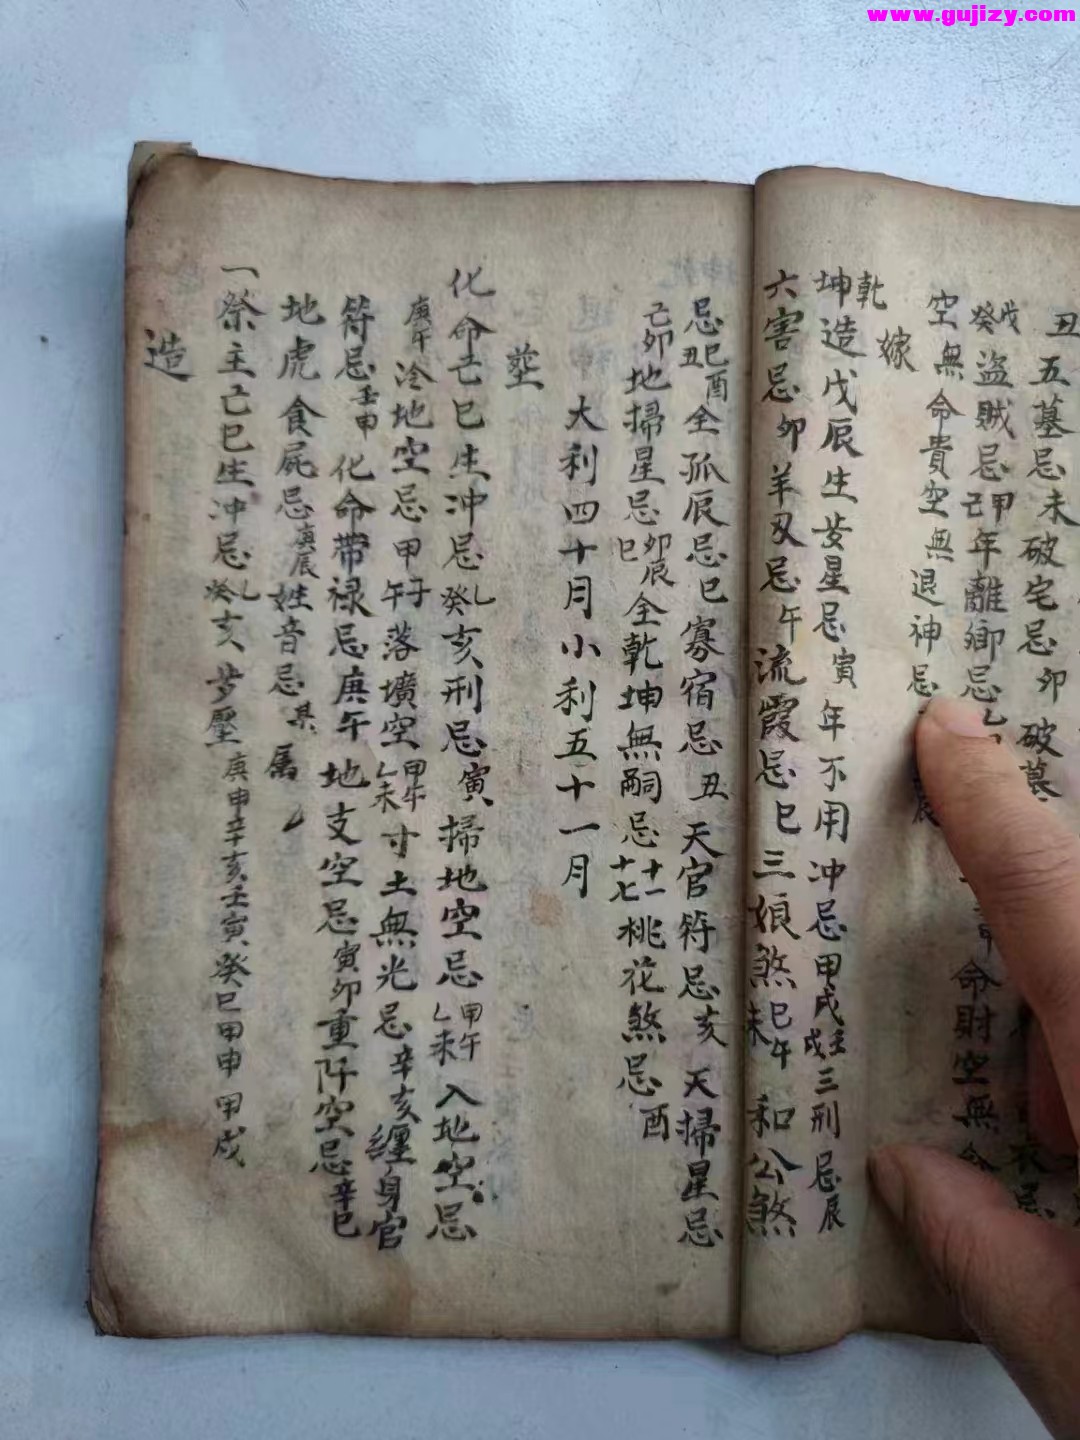 www.gujizy.com
丑五墓忌未破宅忌卯破墓
癸戊盜賊忌甲己年離鄉忌乙
空無命貴空無退神忌
命財空無命
嫁
乾坤造戊辰生安星忌寅年不用冲忌甲戌壬戌三刑忌辰
六害忌卯羊刃忌午流霞忌巳三娘煞巳午未和公煞
忌巳酉丑全孤辰忌巳寡宿忌丑天官符忌亥天掃星忌
己卯地掃星忌卯辰巳全乾坤無嗣忌十一十七桃花煞忌酉
大利四十月小利五十一月
塟
化命己巳生冲忌乙癸亥刑忌寅掃地空忌甲午乙未入地空忌
庚午冷地空忌甲子午落壙空甲午乙未寸土無光忌辛亥纏身官
符忌壬申化命帶禄忌庚午地支空忌寅卯重阡空忌辛巳
地虎食屍忌庚辰姓音忌某属
一祭主己巳生冲忌乙癸亥夢壓庚申辛亥壬寅癸巳甲申甲戌
造